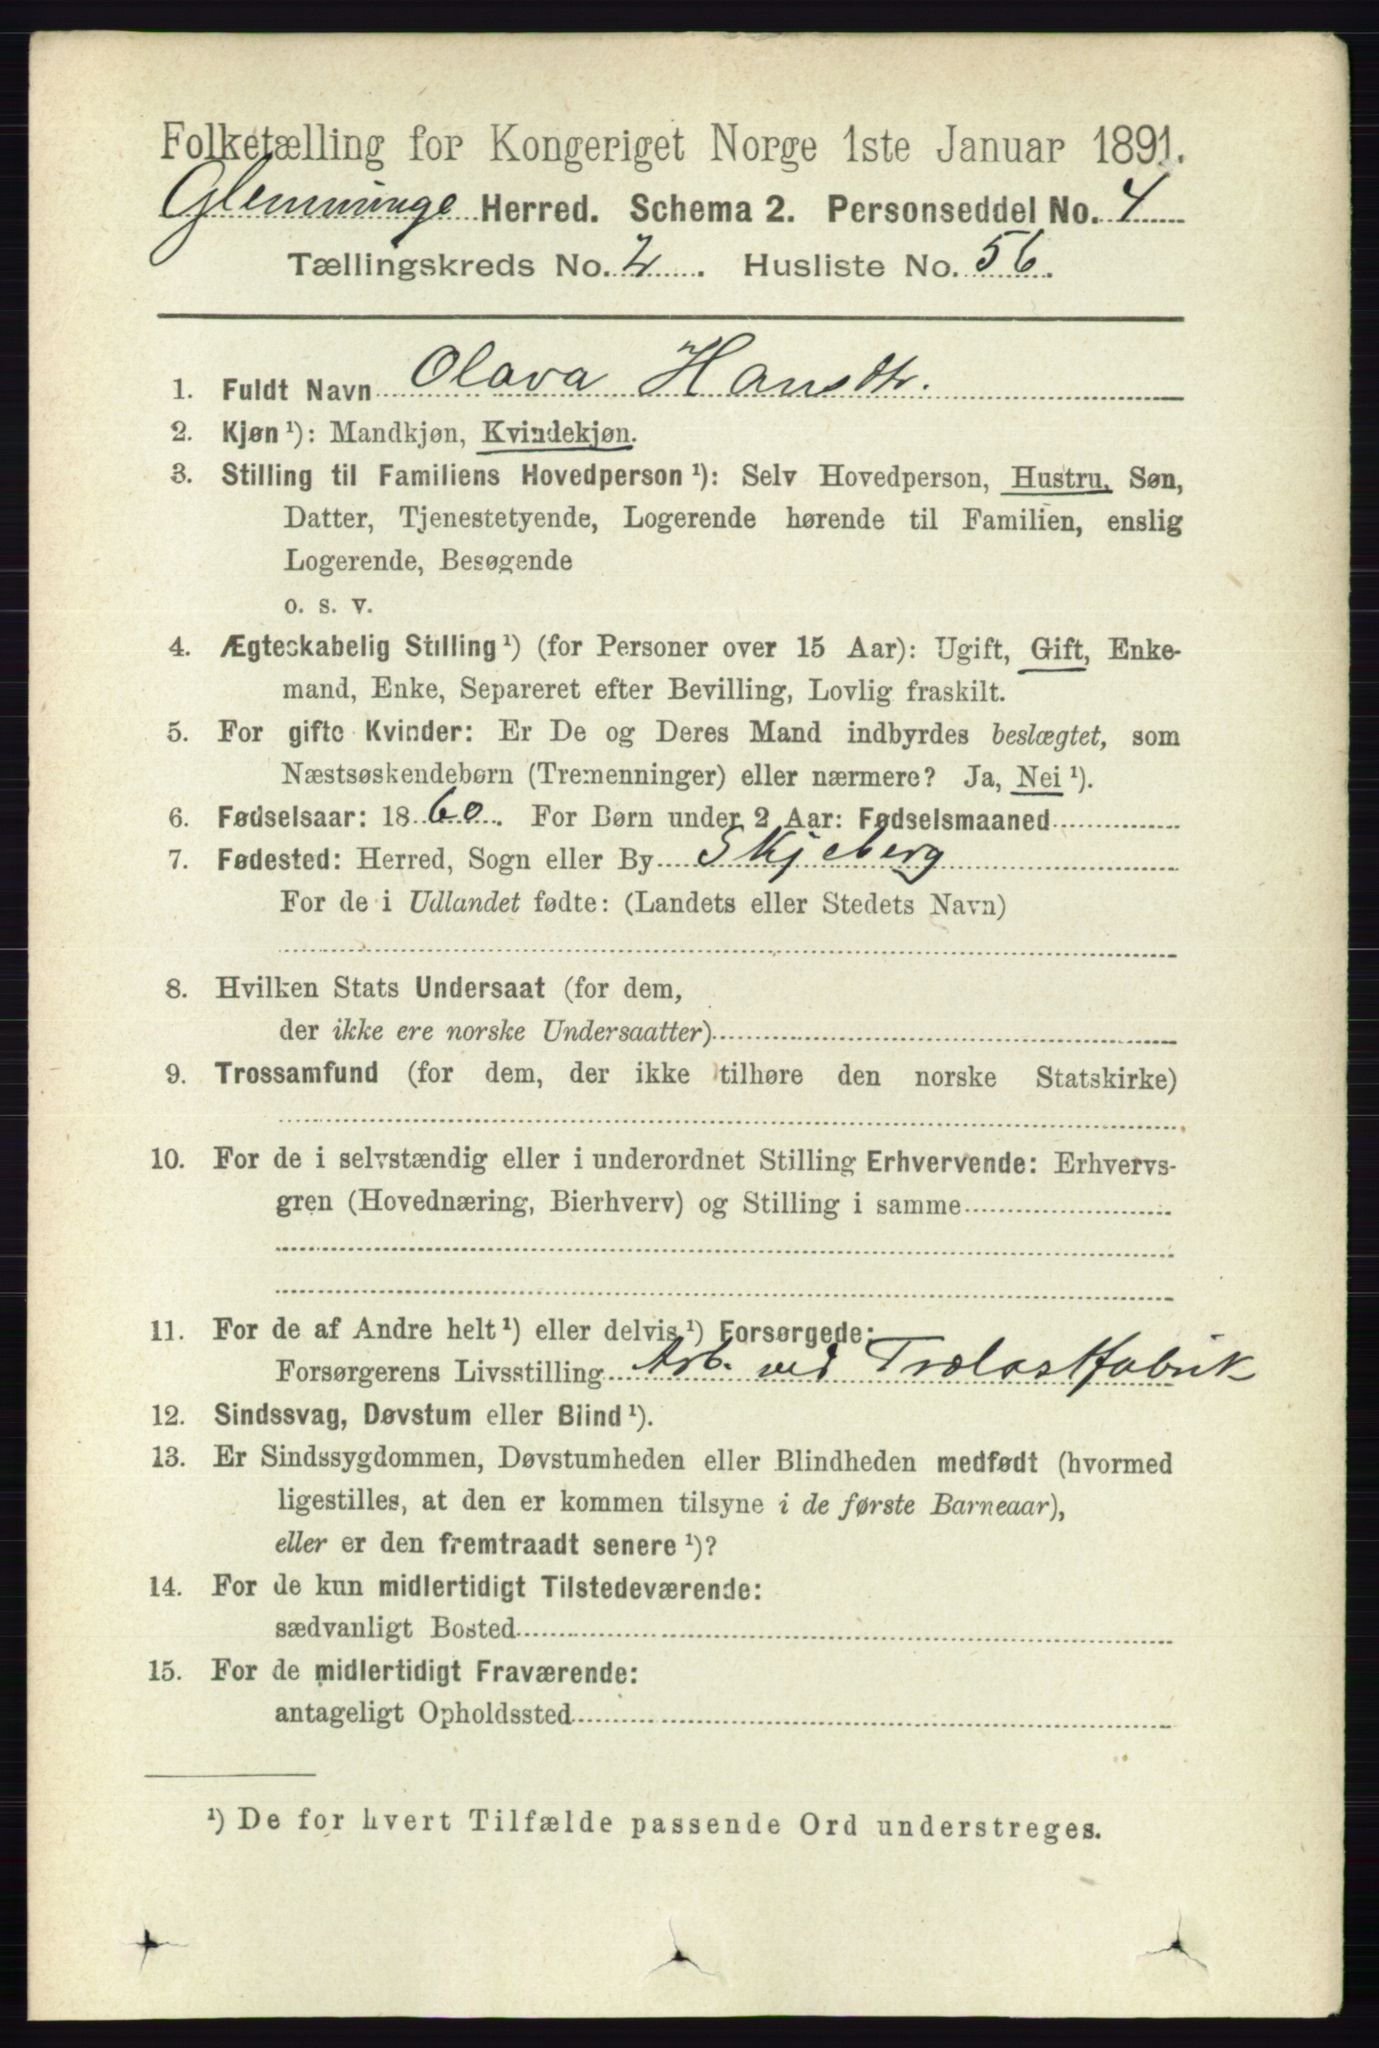 Folketælling for Kongeriget Norge 1ste Januar 1891.
Glemminge Herred. Schema 2. Personseddel No. 4
Tællingskreds No. 2. Husliste No. 56.
1. Fuldt Navn Olava Hansdtr.
2. Kjøn ¹): Mandkjøn, Kvindekjøn.
3. Stilling til Familiens Hovedperson ¹): Selv Hovedperson, Hustru, Søn,
Datter, Tjenestetyende, Logerende hørende til Familien, enslig
Logerende, Besøgende
o. s. v.
4. Ægteskabelig Stilling ¹) (for Personer over 15 Aar): Ugift, Gift, Enke-
mand, Enke, Separeret efter Bevilling, Lovlig fraskilt.
5. For gifte Kvinder: Er De og Deres Mand indbyrdes beslægtet, som
Næstsøskendebørn (Tremenninger) eller nærmere? Ja, Nei ¹).
6. Fødselsaar: 1860. For Børn under 2 Aar: Fødselsmaaned
7. Fødested: Herred, Sogn eller By Skjeberg
For de i Udlandet fødte: (Landets eller Stedets Navn)
8. Hvilken Stats Undersaat (for dem,
der ikke ere norske Undersaatter)
9. Trossamfund (for dem, der ikke tilhøre den norske Statskirke)
10. For de i selvstændig eller i underordnet Stilling Erhvervende: Erhvervs-
gren (Hovednæring, Bierhverv) og Stilling i samme
11. For de af Andre helt ¹) eller delvis ¹) Forsørgede:
Forsørgerens Livsstilling Arb. ved Trælastfabrik
12. Sindssvag, Døvstum eller Blind ¹).
13. Er Sindssygdommen, Døvstumheden eller Blindheden medfødt (hvormed
ligestilles, at den er kommen tilsyne i de første Barneaar),
eller er den fremtraadt senere ¹)?
14. For de kun midlertidigt Tilstedeværende:
sædvanligt Bosted
15. For de midlertidigt Fraværende:
antageligt Opholdssted
¹) De for hvert Tilfælde passende Ord understreges.